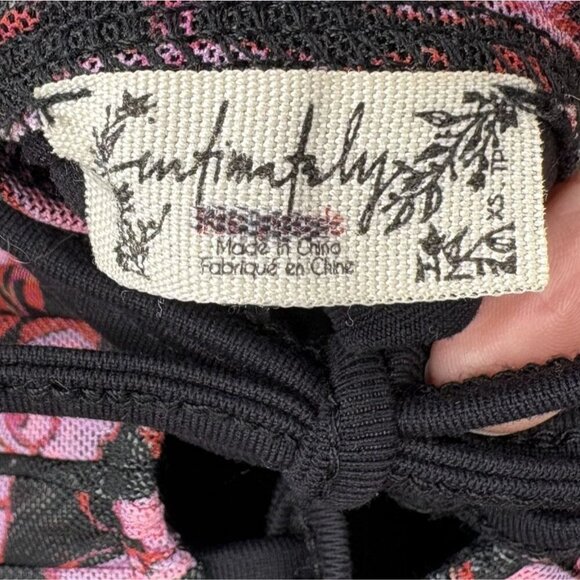 intimately
Made in China
Fabriqué en Chine
XS · TP